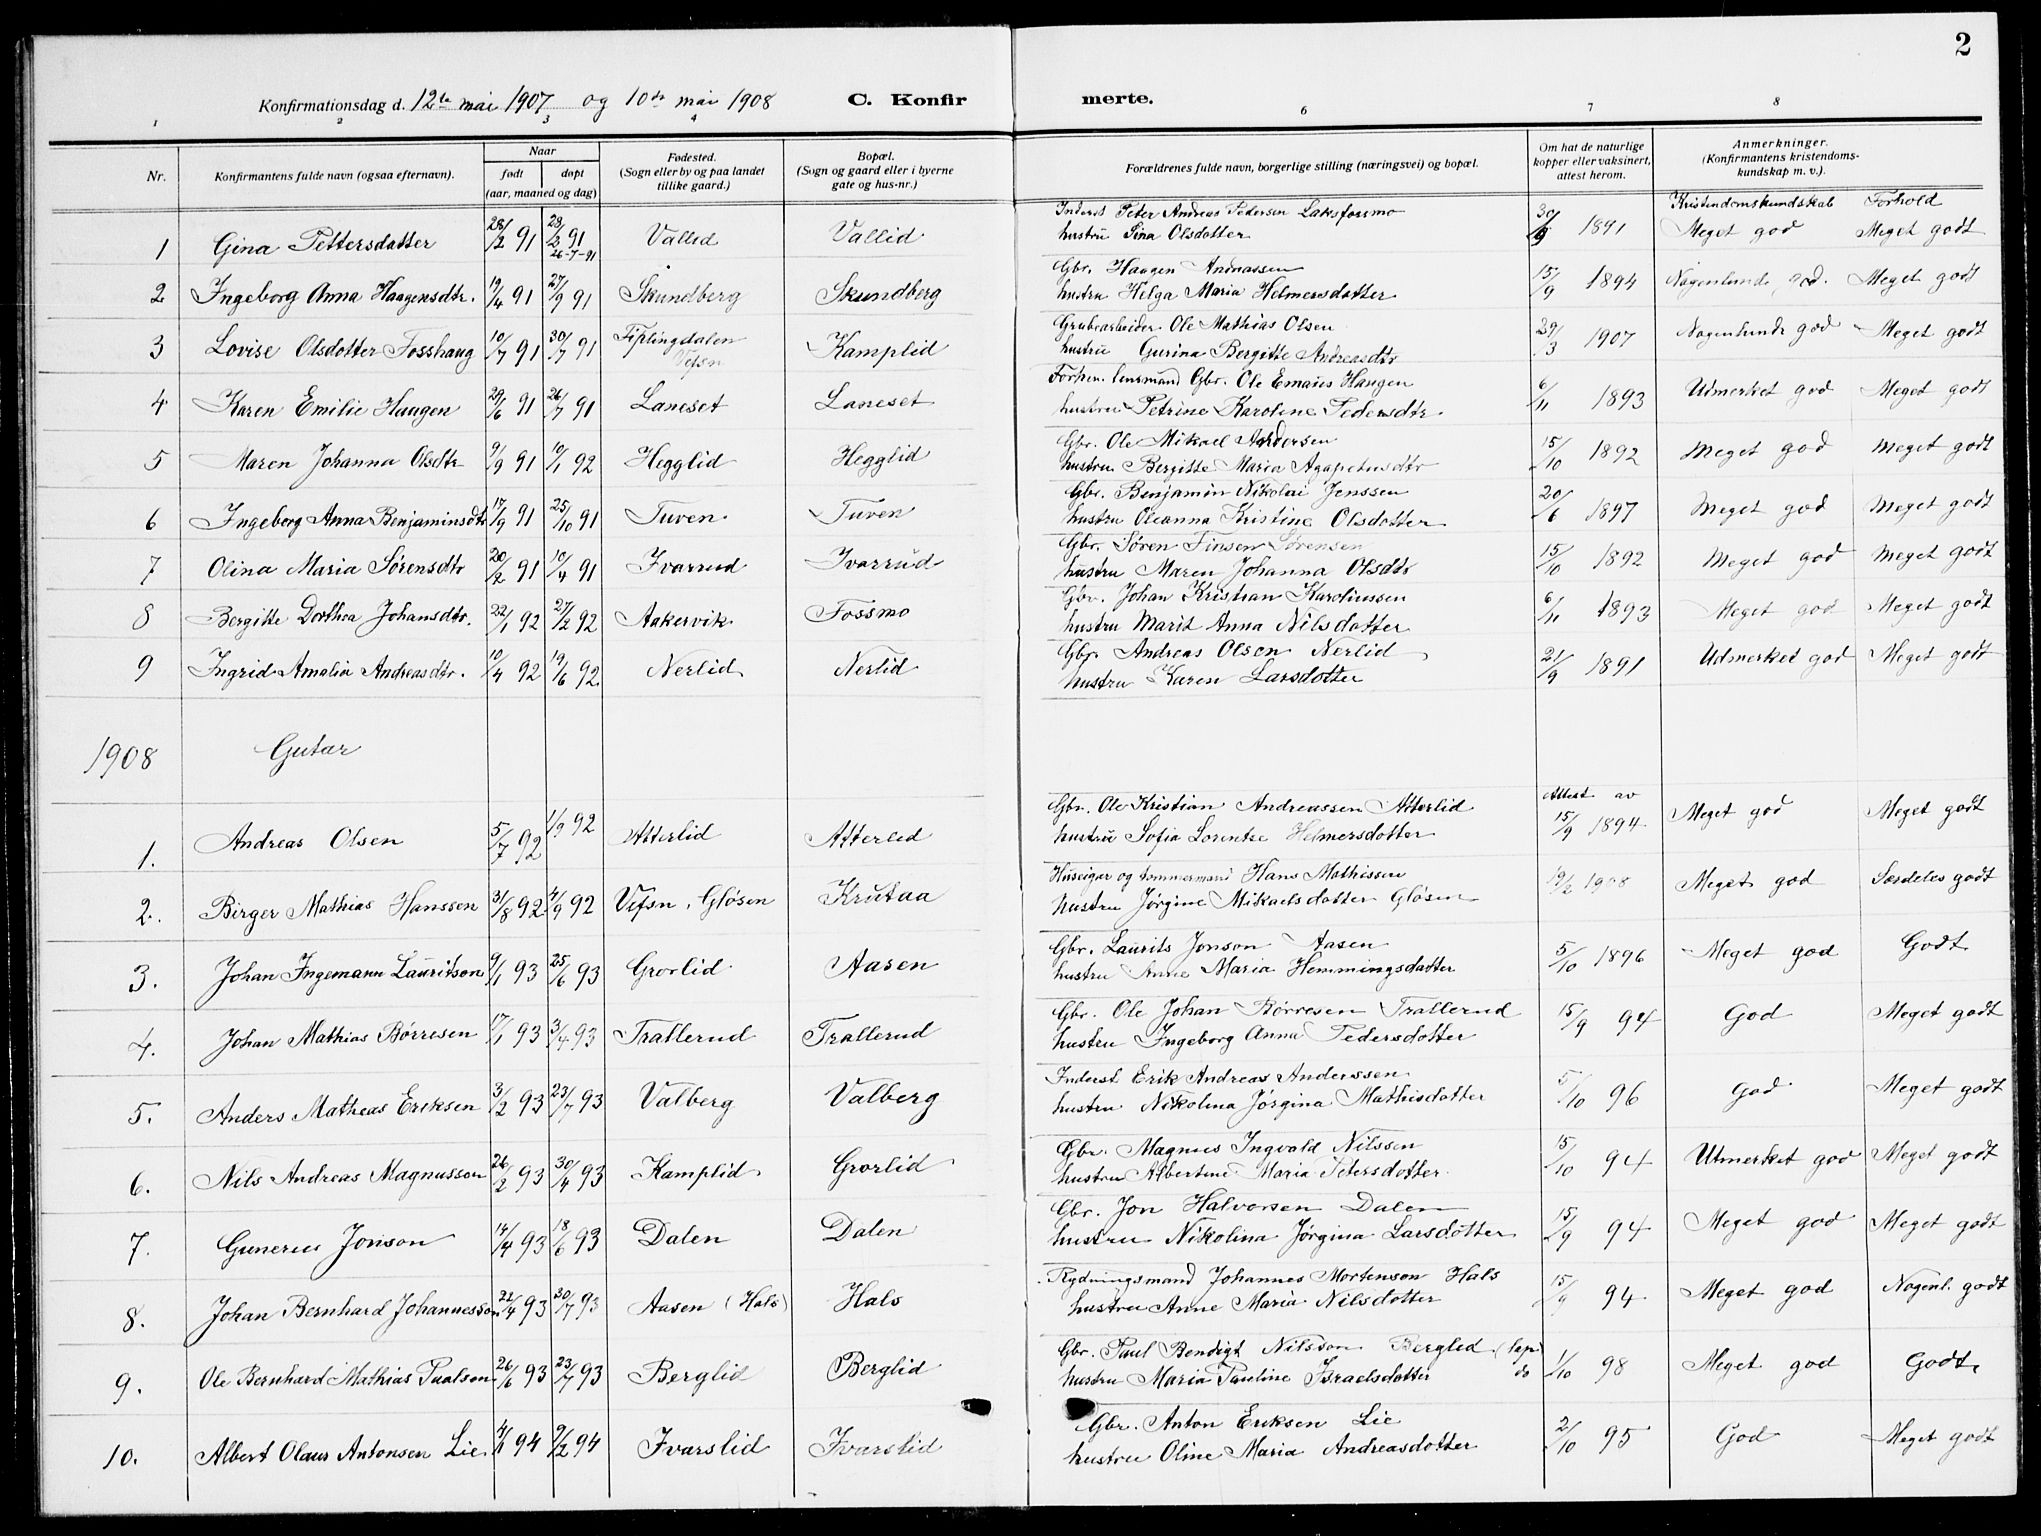 2
Konfirmationsdag d. 12te mai 1907 og 10de mai 1908 C. Konfir merte.
1 2 3 4 6 7 8
Nr. Konfirmantens fulde navn (ogsaa efternavn). Naar født døpt (aar, maaned og dag) Fødested. (Sogn eller by og paa landet tillike gaard.) Bopæl. (Sogn og gaard eller i byerne gate og hus-nr.) Forældrenes fulde navn, borgerlige stilling (næringsvei) og bopæl. Om hat de naturlige kopper eller vaksinert, attest herom. Anmerkninger. (Konfirmantens kristendomskundskap m. v.).
Kristendomskundskab Forhold
1 Gina Pettersdatter 28/2 91 28/2 91 26-7-91 Vallid Vallid Inderst Peter Andreas Pedersen Laksforsmo
hustru Sina Olsdatter 1891 Meget god Meget godt
2 Ingeborg Anna Haagensdtr. 19/4 91 27/9 91 Skundberg Skundberg Gbr. Haagen Andreassen
hustru Helga Maria Helmersdatter 15/9 1894 Nogenlunde god. Meget godt
3 Lovise Olsdotter Fosshaug 10/7 91 30/7 91 Fiplingdalen Vefsn Kamplid Grubearbeider Ole Mathias Olsen
hustru Gurina Bergitte Andreasdtr 29/3 1907 Nogenlunde god Meget godt
4 Karen Emilie Haugen 29/6 91 26/7 91 Laneset Laneset Forhen. lensmand Gbr. Ole Emaus Haugen
hustru Petrine Karoline Pedersdtr. 6/11 1893 Udmerket god Meget godt
5 Maren Johanna Olsdtr 9/9 91 10/1 92 Hegglid Hegglid Gbr. Ole Mikael Andersen
hustru Bergitte Maria Agapetusdtr 15/10 1892 Meget god Meget godt
6 Ingeborg Anna Benjaminsdtr 17/9 91 25/10 91 Tuven Tuven Gbr. Benjamin Nikolai Jenssen
hustru Oleanna Kristine Olsdotter 20/6 1897 Meget god Meget godt
7 Olina Maria Sørensdtr 20/2 91 10/4 91 Ivarrud Ivarrud Gbr. Søren Finsen Sørensen
hustru Maren Johanna Olsdtr 15/10 1892 Meget god Meget godt
8 Bergitte Dorthea Johansdtr. 22/1 92 27/2 92 Aakervik Fossmo Gbr. Johan Kristian Karoliussen
hustru Marit Anna Nilsdatter 6/11 1893 Meget god Meget godt
9 Ingrid Amalia Andreasdtr. 10/4 92 19/6 92 Nerlid Nerlid Gbr. Andreas Olsen Nerlid
hustru Karen Larsdotter 21/9 1891 Udmerket god Meget godt
1908 Gutar
1. Andreas Olsen 5/7 92 1/9 92 Atterlid Atterlid Gbr. Ole Kristian Andreassen Atterlid
hustru Sofia Lorentze Helmersdotter Attest av 15/9 1894 Meget god Meget godt
2. Birger Mathias Hanssen 31/8 92 4/9 92 Vefsn, Gløsen Krutaa Huseigar og tømmermand Hans Mathissen
hustru Jørgine Mikaelsdotter Gløsen 19/2 1908 Meget god Særdeles godt
3. Johan Ingemann Lauritson 9/1 93 25/6 93 Grovlid Aasen Gbr. Laurits Jonson Aasen
hustru Anne Maria Hemmingsdatter 5/10 1896 Meget god Godt
4. Johan Mathias Børresen 17/1 93 3/4 93 Trallerud Trallerud Gbr. Ole Johan Børresen Trallerud
hustru Ingeborg Anna Pedersdotter 15/9 94 God Meget godt
5. Anders Matheas Eriksen 3/2 93 23/7 93 Valberg Valberg Inderst Erik Andreas Anderssen
hustru Nikolina Jørgina Mathisdotter 5/10 96 God Meget godt
6. Nils Andreas Magnusson 26/2 93 30/4 93 Kamplid Grovlid Gbr. Magnus Ingvald Nilssen
hustru Albertine Maria Petersdotter 15/10 94 Utmerket god Meget godt
7. Gunerius Jonson 14/4 93 18/6 93 Dalen Dalen Gbr. Jon Halvorsen Dalen
hustru Nikolina Jørgina Larsdotter 15/9 94 Meget god Meget godt
8. Johan Bernhard Johannesson 21/4 93 30/7 93 Aasen (Hals) Hals Rydningsmand Johannes Mortenson Hals
hustru Anne Maria Nilsdotter 15/9 94 Meget god Nogenl. godt
9. Ole Bernhard Mathias Paalson 26/6 93 23/7 93 Berglid Berglid Gbr. Paul Bendigt Nilsson Berglid (lap)
hustru Maria Pauline Israelsdotter do 1/10 98 Meget god Godt
10. Albert Olaus Antonsen Lie 94 9/2 94 Ivarslid Ivarslid Gbr. Anton Eriksen Lie
hustru Oline Maria Andreasdotter 2/10 95 God Meget godt